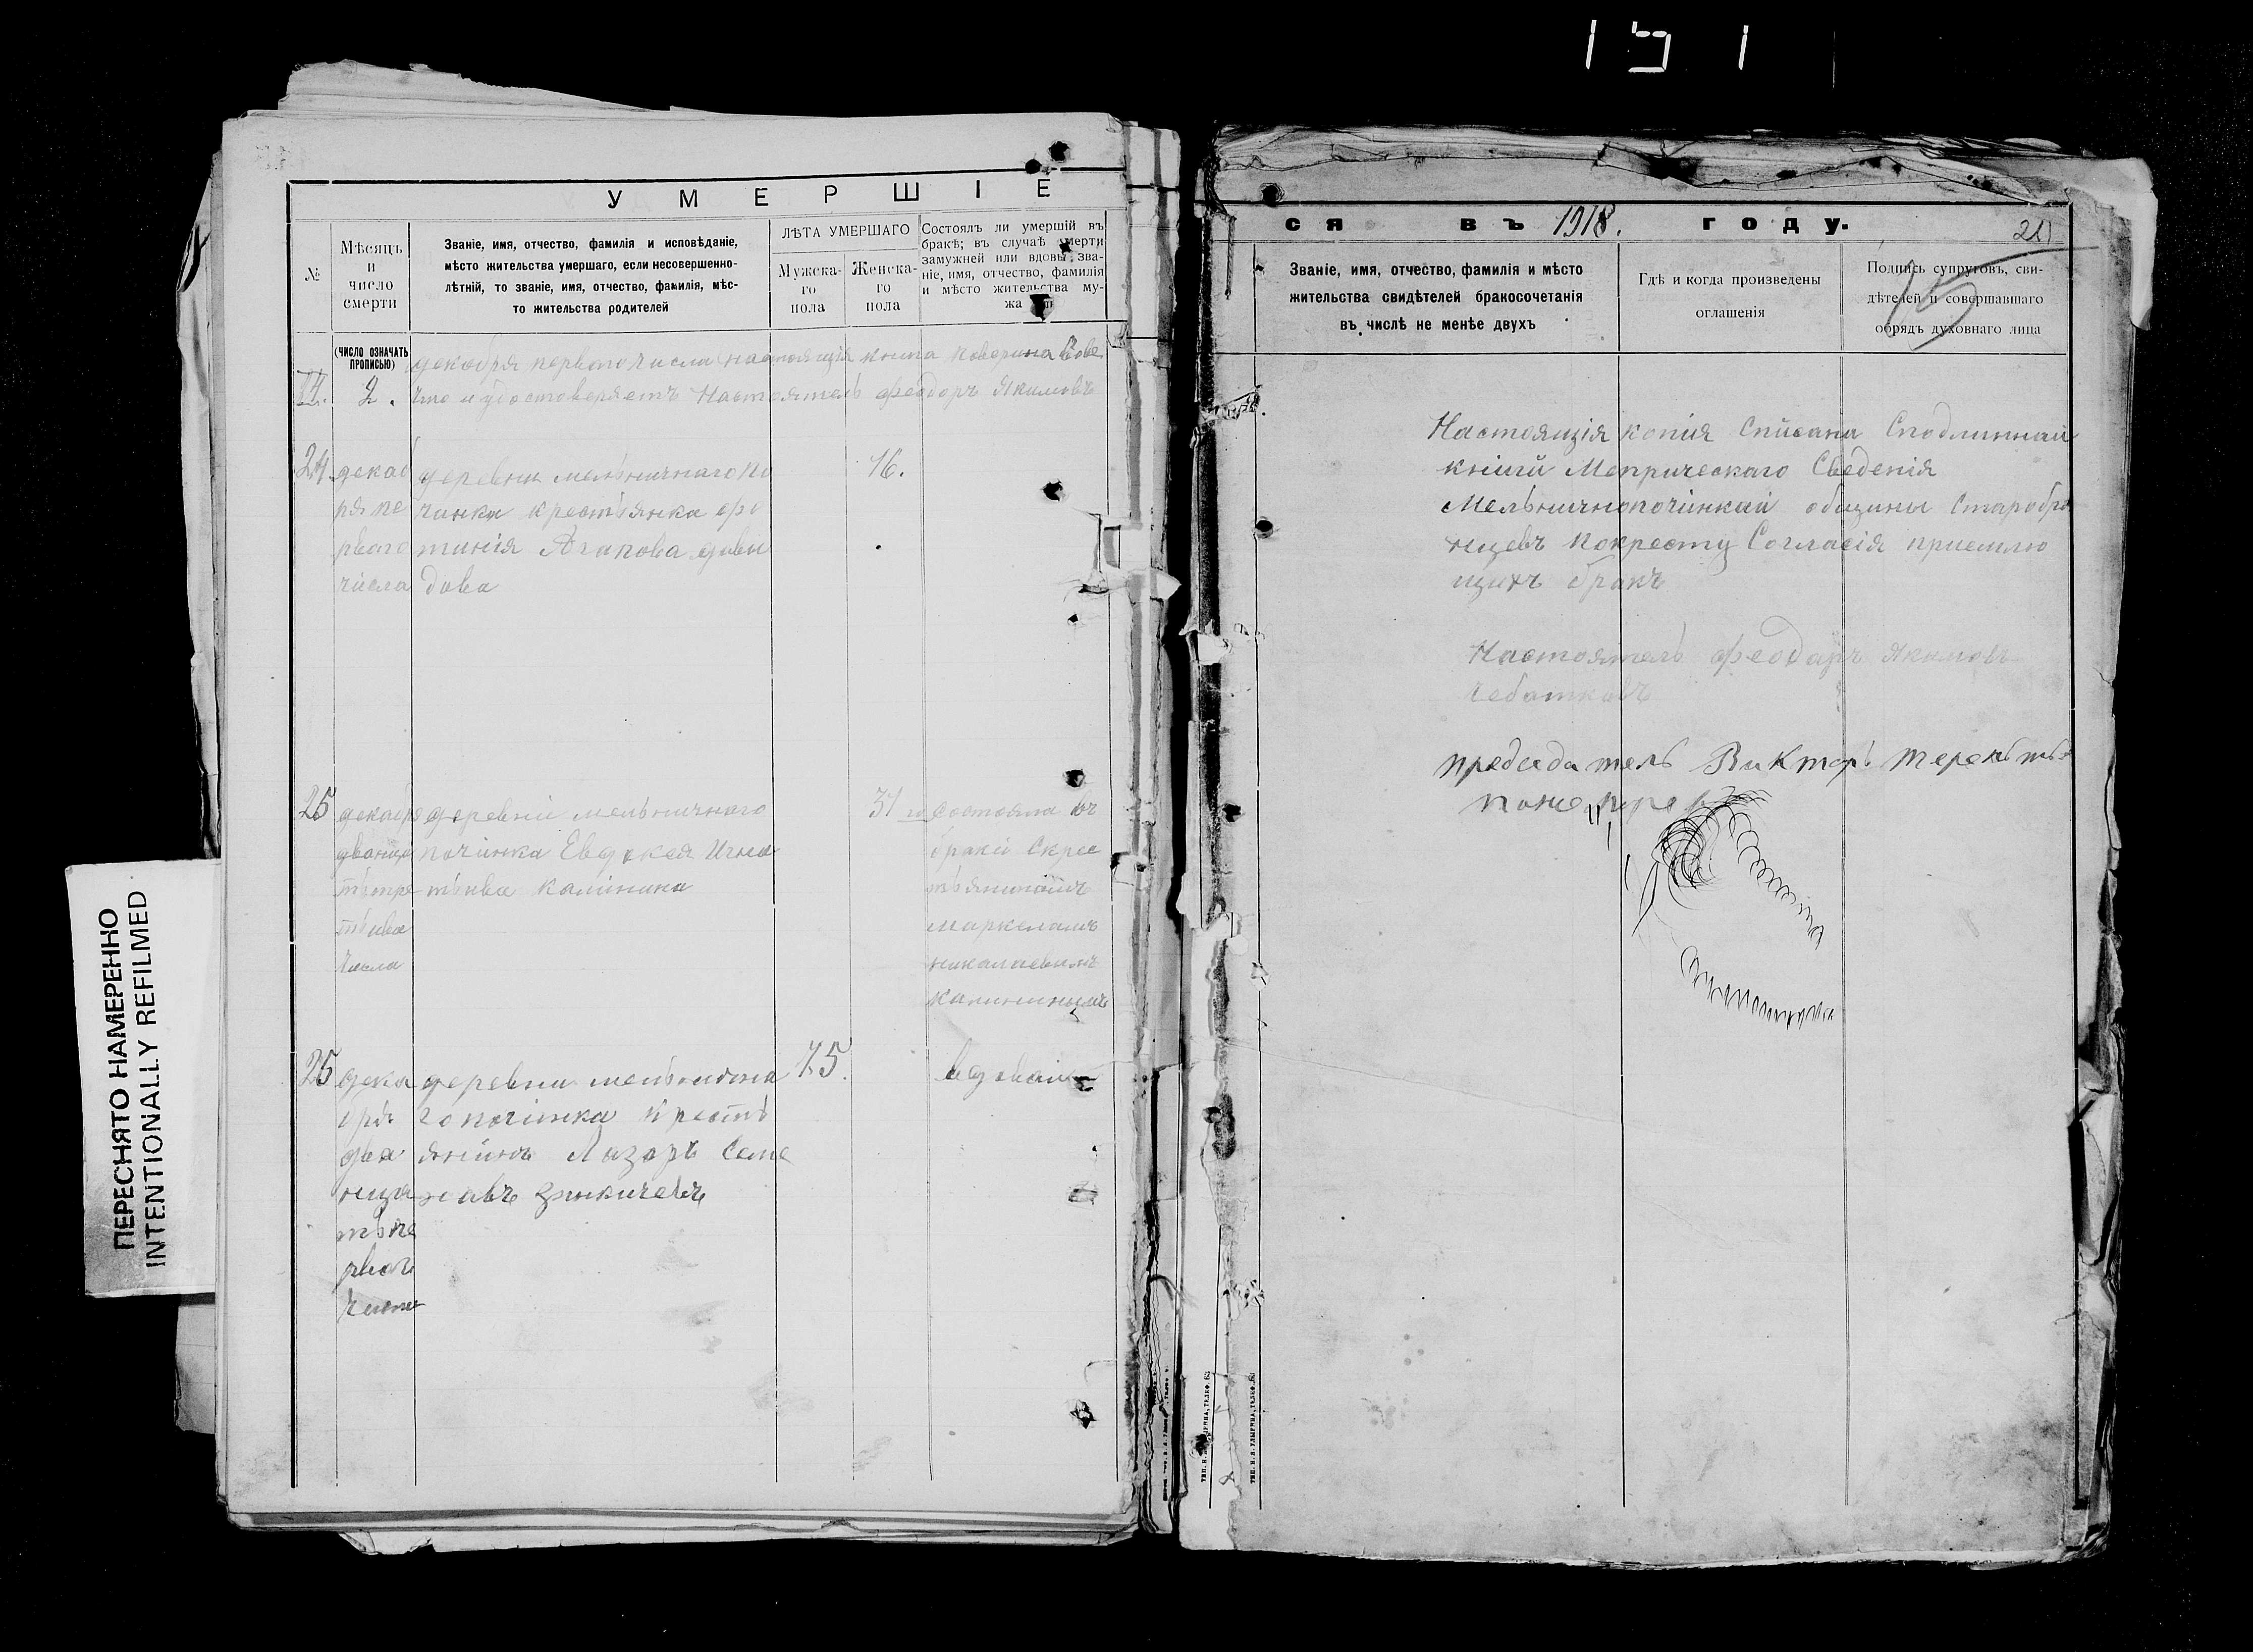 1 5 1
У М Е Р Ш І Е
№
Мѣсяцъ
и
число
смерти
Званіе, имя, отчество, фамилія и исповѣданіе,
мѣсто жительства умершаго, если несовершенно-
лѣтній, то званіе, имя, отчество, фамилія, мѣс-
то жительства родителей
ЛѢТА УМЕРШАГО
Мужска-
го
пола
Женска-
го
пола
Состоялъ ли умершій въ
бракѣ; въ случаѣ смерти
замужней или вдовы зва-
ніе, имя, отчество, фамилія
и мѣсто жительства му-
жа
(ЧИСЛО ОЗНАЧАТЬ
ПРОПИСЬЮ)
декабря первого числа настоящія книга
2. Настоятель Феодоръ Якимовъ
24 декаб деревни мельничнаго по 16.
ря пе чинка крестьянка фо
рваго тинія давы
числа дова
25 декабря деревни мельничнаго 31 го состояла въ
дванца починка Евдокея Игна
тьтре тьива калинина
тьива
числа
браки Скрес
тьяниномъ
маркеломъ
николаевымъ
калининымъ
25 дека деревни мельнична 75.
бря гопочинка кресть
два янинъ Лазарь Семе
нца новъ
тьпе
рваго
числа
СЯ ВЪ 1918. ГОДУ.
Званіе, имя, отчество, фамилія и мѣсто
жительства свидѣтелей бракосочетанія
въ числѣ не менѣе двухъ
Гдѣ и когда произведены
оглашенія
Подпись супруговъ, сви-
дѣтелей и совершавшаго
обрядъ духовнаго лица
Настоящія копія Списана Сподлиннай
книги Метрическаго Сведенія
Мельничнопочинкай общины Старобря
нцевъ покресту Согласія приемлю
щихъ бракъ
Настоятель феодаръ Якимовъ
чебатковъ
председатель Викторъ
ПЕРЕСНЯТО НАМЕРЕННО
INTENTIONALLY REFILMED